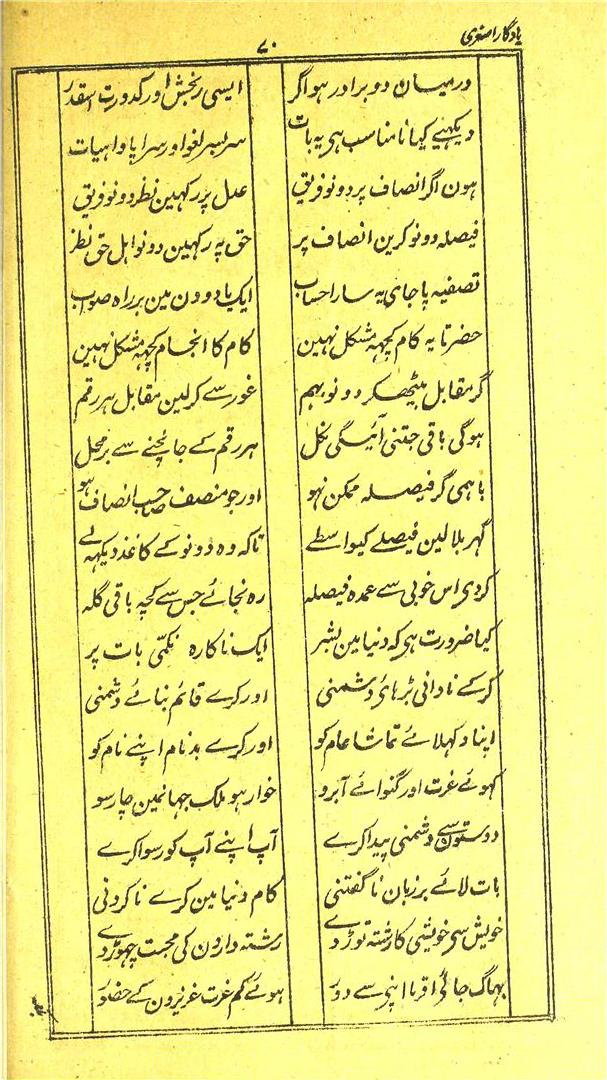 یادگار اصغری
۷۰
درمیان دو برادر ہو اگر ایسی رنجش اور کدورت اسقدر
دیکھیے کیا نامناسب ہی یہ بات سربسر لغو اور سراپا واہیات
ہون اگر انصاف پر دونو فریق عدل پر رکہین نظر دونو فریق
فیصلہ دونو کرین انصاف پر حق پہ رکہین دونو اہل حق نظر
تصفیہ پا جای یہ سارا حساب ایک یا دو دن مین بر راہ صواب
حضرتا یہ کام کچہہ مشکل نہین کام کا انجام کچہہ مشکل نہین
گر مقابل بیٹھکر دونو بہم غور سے کر لین مقابل ہر رقم
ہوگی باقی جتنی آئیگی نکل ہر رقم کے جانچنے سے بر محل
باہمی گر فیصلہ ممکن نہو اور جو منصف صاحب انصاف ہو
گہر بلا لین فیصلے کیواسطے تاکہ وہ دونو کے کاغذ دیکہہ لے
کر دی اس خوبی سے عمدہ فیصلہ رہ نجائے جس سے کچہ باقی گلہ
کیا ضرورت ہی کہ دنیا مین بشر ایک ناکارہ نکمّی بات پر
کر کے نادانی بڑہائے دشمنی اور کرے قائم بنائے دشمنی
اپنا دکہلائے تماشا عام کو اور کرے بدنام اپنے نام کو
کہوئے عزت اور گنوائے آبرو خوار ہو ملک جہانمین چار سو
دوستون سے دشمنی پیدا کرے آپ اپنے آپ کو رسوا کرے
بات لائے بر زبان ناگفتنی کام دنیا مین کرے ناکردنی
خویش سی خویشی کا رشتہ توڑ دے رشتہ دارون کی محبت چہوڑ دے
بہاگ جائے اقربا اپنی سے دور ہوئے کم عزت عزیزون کے حضور